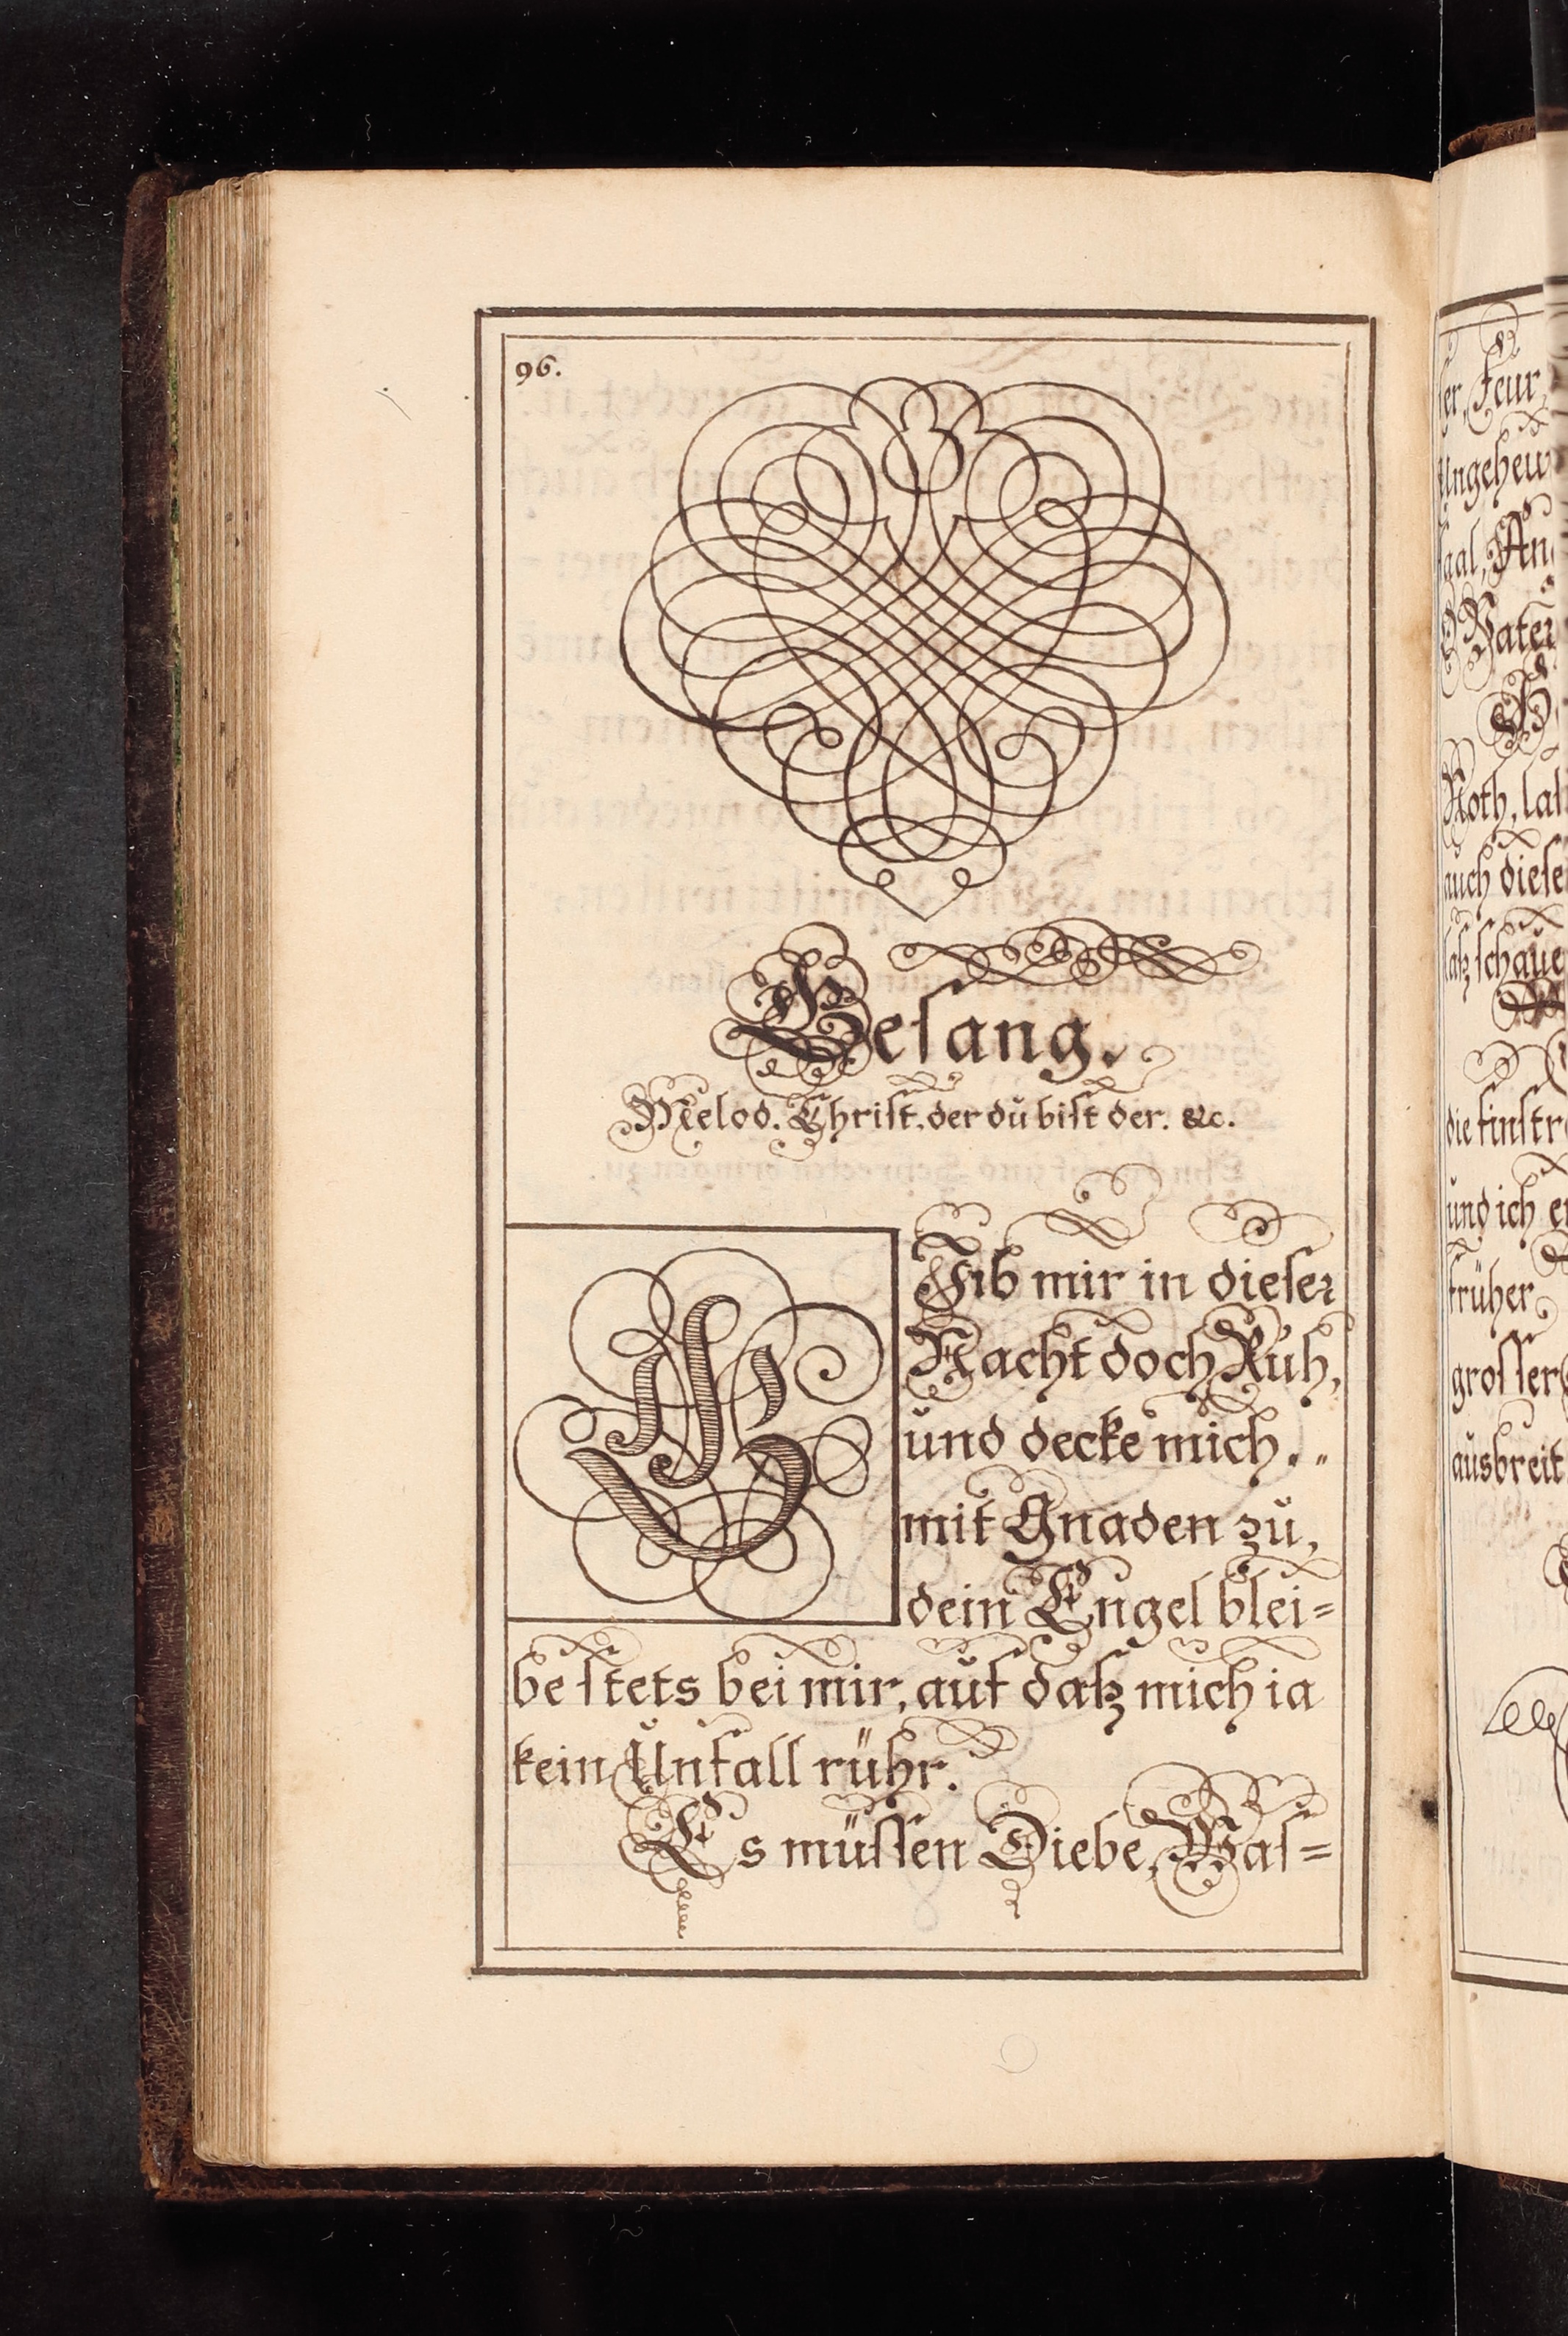 96.
Gesang.
Melod. Christ, der du bist der. &c.
GIb mir in dieser
Nacht doch Ruh,
und decke mich. „
mit Gnaden zu,
dein Engel blei=
be stets bei mir, auf daß mich ia
kein Unfall rühr.
Es müssen Diebe, Was=
Feur,
Ungeheu
Vater
Noth, laß
auch diese
laß schaue
die finstr
und ich
früher
grosser
ausbreit